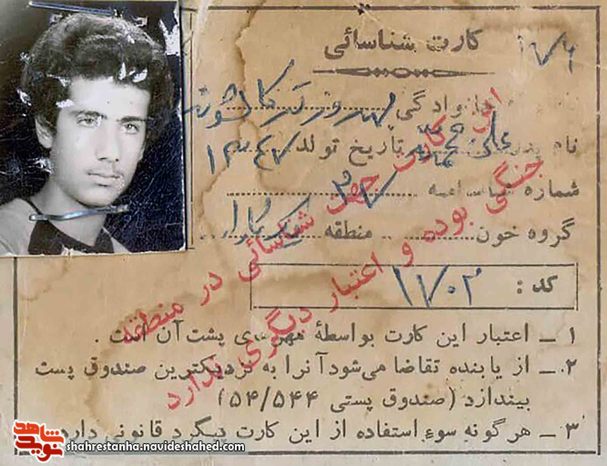 کارت شناسائی
۱۷۰۲
خانوادگی بهروز ترکاشوند
نام پدر علی محمد تاریخ تولد ۱۳۴۷
شماره شناسنامه
گروه خون منطقه
کد : ۱۷۰۲
این کارت جهت شناسائی در منطقه
جنگی بوده و اعتبار دیگری ندارد
۱ ــ اعتبار این کارت بواسطهٔ مهر پشت آن است .
۲ ــ از یابنده تقاضا می‌شود آنرا به نزدیکترین صندوق پست
بیندازد (صندوق پستی ۵۴/۵۴۴)
۳ ــ هرگونه سوء استفاده از این کارت پیگرد قانونی دارد
نوید شاهد
shahrestanha.navideshahed.com